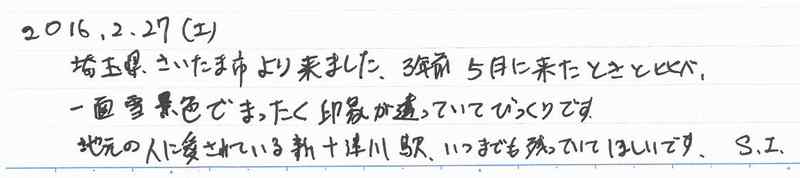 2016.2.27(土)
埼玉県さいたま市より来ました、3年前5月に来たときと比べ、
一面雪景色でまったく印象が違っていてびっくりです
地元の人に愛されている新十津川駅、いつまでも残っていてほしいです、 S.I.